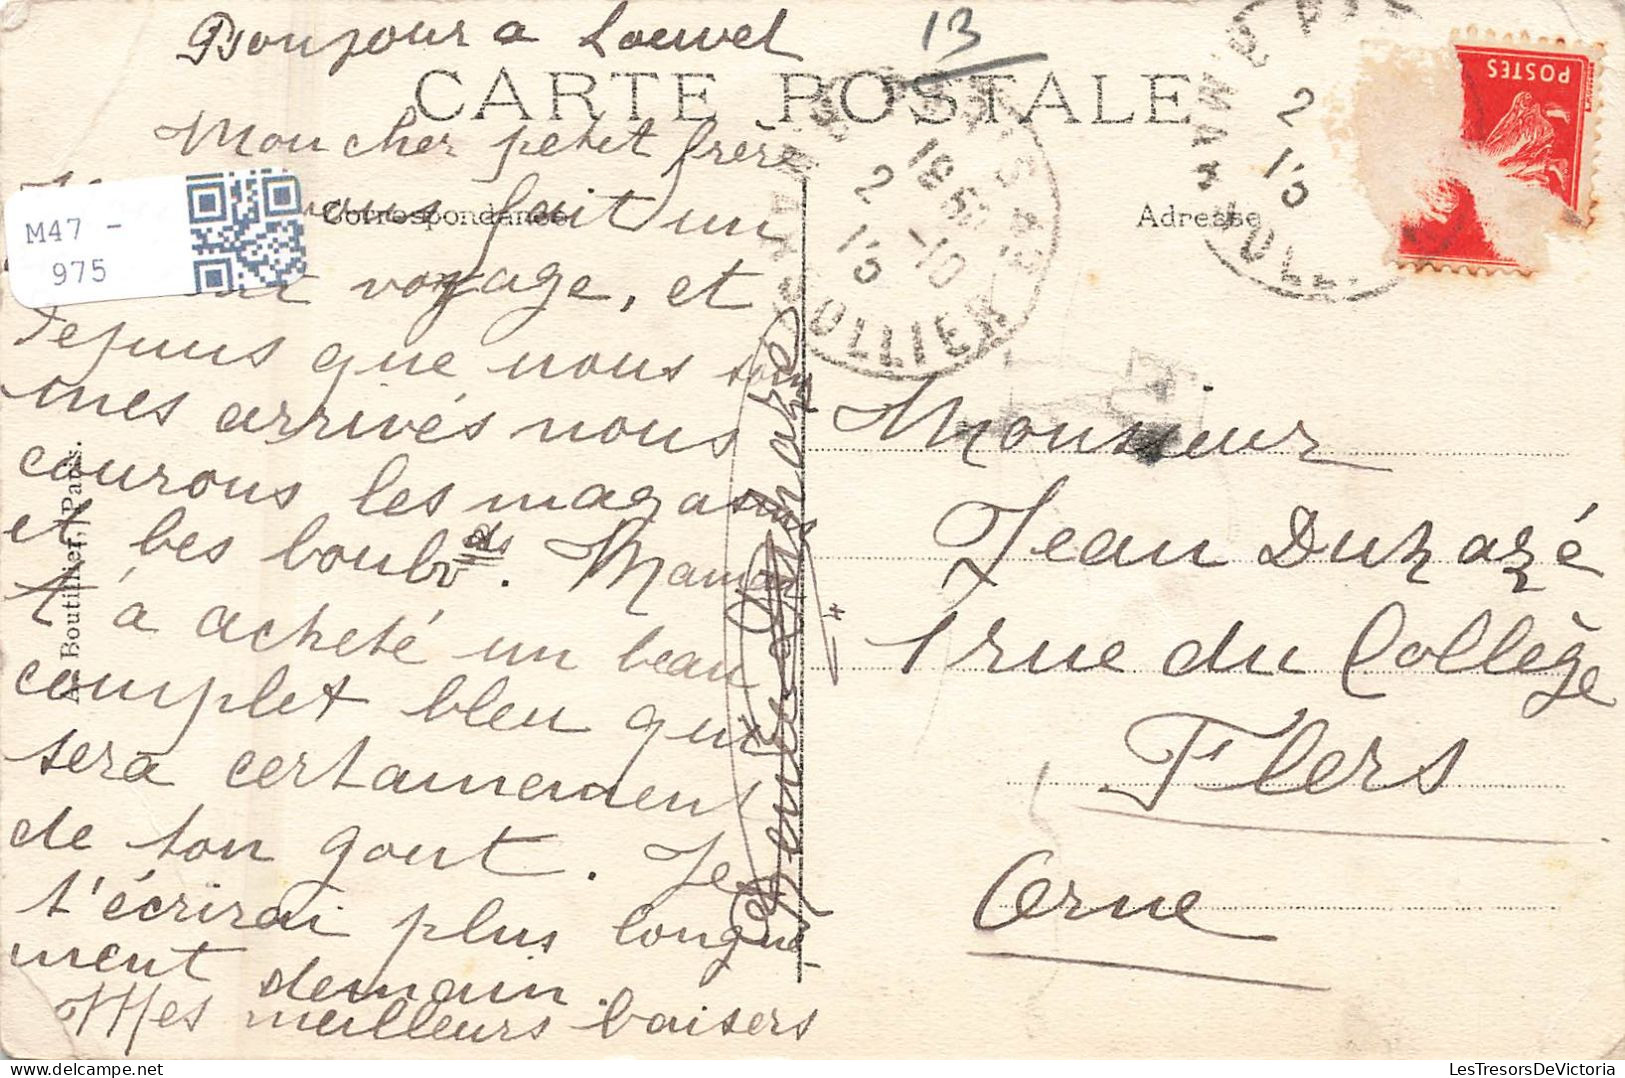 Bonjour a Louvel
13
CARTE POSTALE
Mon cher petit frère
fait un
Correspondance
Adresse
voyage, et
depuis que nous som
mes arrivés nous
courons les magasins
et les boulvds. Maman
t'a acheté un beau
complet bleu qui
sera certainement
de ton gout. Je
t'écrirai plus longue
ment demain.
Mes meilleurs baisers
A. Boutillier, Paris.
M47 -
975
POSTES
18
2
-10
15
OULLIER
2
15
Monsieur
Jean Duhazé
1 rue du Collège
Flers
Orne